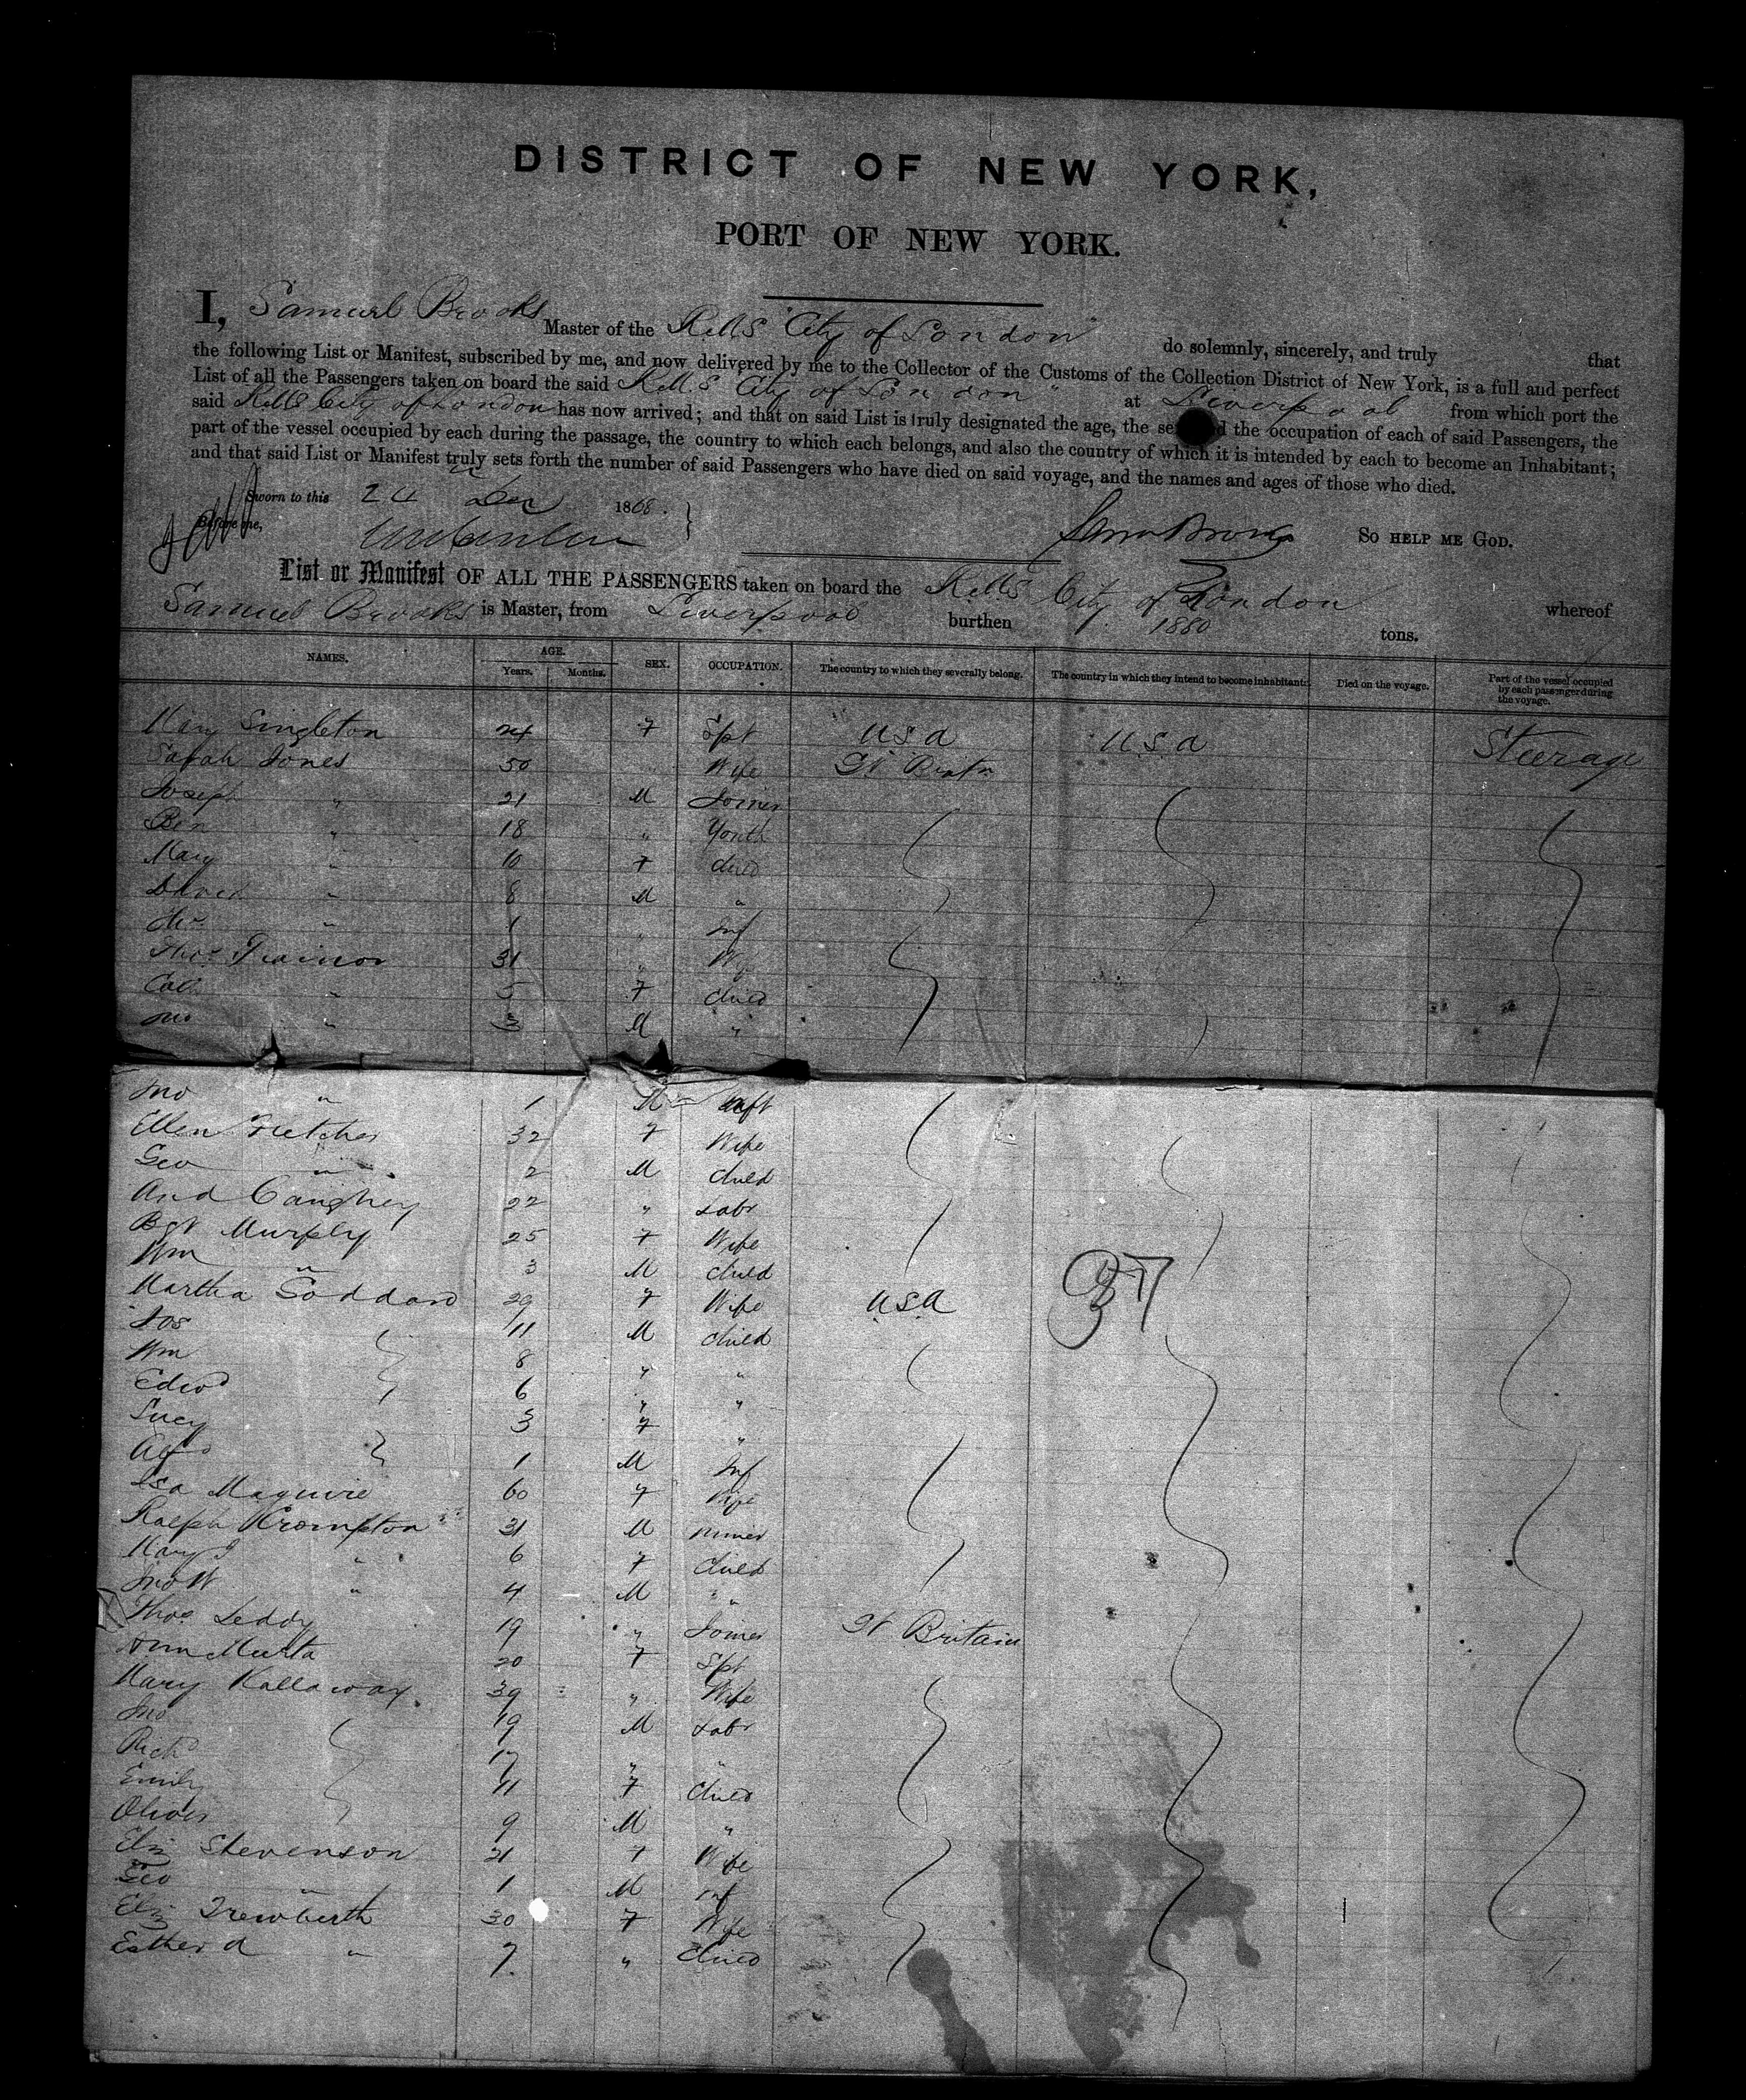 DISTRICT OF NEW YORK,
PORT OF NEW YORK.
I, Samuel Brooks Master of the RMSS "City of London" do solemnly, sincerely, and truly that
the following List or Manifest, subscribed by me, and now delivered by me to the Collector of the Customs of the Collection District of New York, is a full and perfect
List of all the Passengers taken on board the said RMSS "City of London" at Liverpool from which port the
said RMSS City of London has now arrived; and that on said List is truly designated the age, the se d the occupation of each of said Passengers, the
part of the vessel occupied by each during the passage, the country to which each belongs, and also the country of which it is intended by each to become an Inhabitant;
and that said List or Manifest truly sets forth the number of said Passengers who have died on said voyage, and the names and ages of those who died.
Sworn to this 24 Dec 1868.
Before me, Saml Brooks SO HELP ME GOD.
List or Manifest OF ALL THE PASSENGERS taken on board the RMSS City of London whereof
Samuel Brooks is Master, from Liverpool burthen 1880 tons.
NAMES. AGE. Years. Months. SEX. OCCUPATION. The country to which they severally belong. The country in which they intend to become inhabitants. Died on the voyage. Part of the vessel occupied by each passenger during the voyage.
Mary Singleton 24 F Spt USA USA Steerage
Sarah Jones 50 " Wife Gt Britn
Joseph " 21 M Joiner
Ben " 18 " Youth
Mary " 10 F child
David " 8 M "
" 1 " Inf
Thos Trainor 31 " Wife
Cath " 5 F child
" 3 M "
Jno " 1 M Inft
Ellen Fletcher 32 F Wife
Geo " 2 M child
And Caughey 22 " Labr
Bgt Murphy 25 F Wife
Wm " 3 M child
37
Martha Goddard 29 F Wife USA
Jos 11 M child
Wm 8 " "
Edwd 6 " "
Lucy 3 F "
Alfd 1 M Inf
Isa Maguire 60 F Wife
Ralph Krompton 31 M miner
Mary J " 6 F child
Jno W " 4 M "
Thos Leddy 19 " Joiner Gt Britain
Ann Murta 20 F Spt
Mary Kallaway 39 " Wife
Jno 19 M Labr
Richd 17 " "
Emily 11 F child
Oliver 9 M "
Eliz Stevenson 21 F Wife
Geo " 1 M inf
Eliz Trewberth 30 F Wife
Esther A " 7 " child